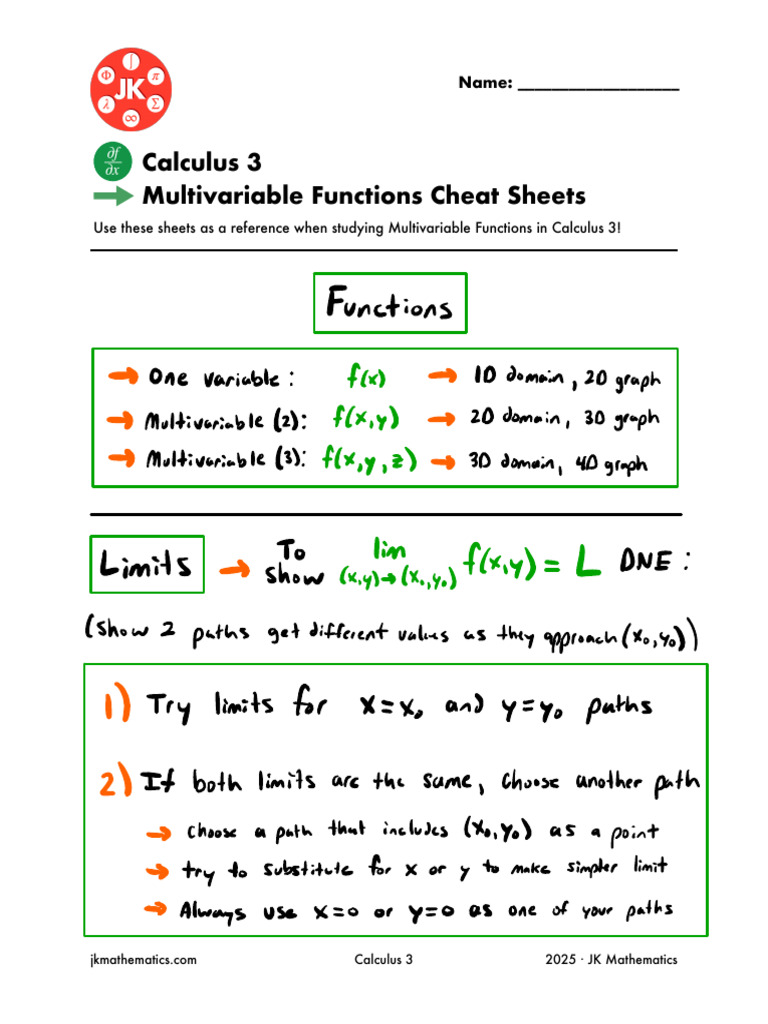 JK
∫ Φ π λ Σ ∞
Name: ___________________
∂f/∂x
Calculus 3
Multivariable Functions Cheat Sheets
Use these sheets as a reference when studying Multivariable Functions in Calculus 3!
Functions
→ One variable: f(x) → 1D domain, 2D graph
→ Multivariable (2): f(x,y) → 2D domain, 3D graph
→ Multivariable (3): f(x,y,z) → 3D domain, 4D graph
Limits → To show lim (x,y)→(x₀,y₀) f(x,y) = L DNE:
(show 2 paths get different values as they approach (x₀,y₀))
1) Try limits for x=x₀ and y=y₀ paths
2) If both limits are the same, choose another path
→ choose a path that includes (x₀,y₀) as a point
→ try to substitute for x or y to make simpler limit
→ Always use x=0 or y=0 as one of your paths
jkmathematics.com Calculus 3 2025 · JK Mathematics